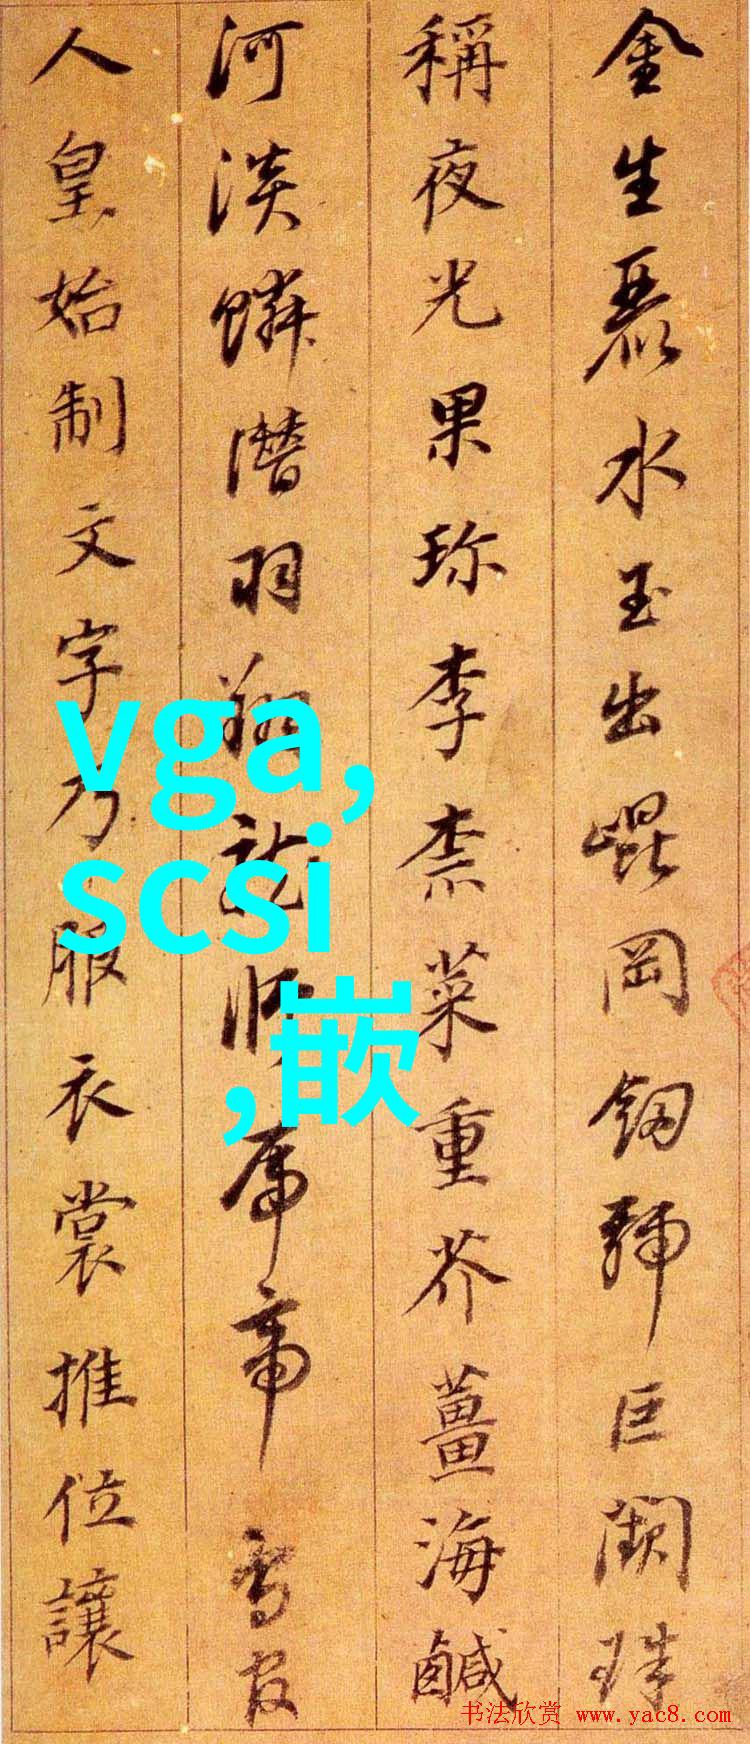 金生麗水玉出崐岡釼號巨闕珠
稱夜光果珎李柰菜重芥薑海鹹
河淡鱗潛羽翔龍師帝鳥官
人皇始制文字乃服衣裳推位讓
vga,
scsi
,嵌
书法欣赏 www.yac8.com